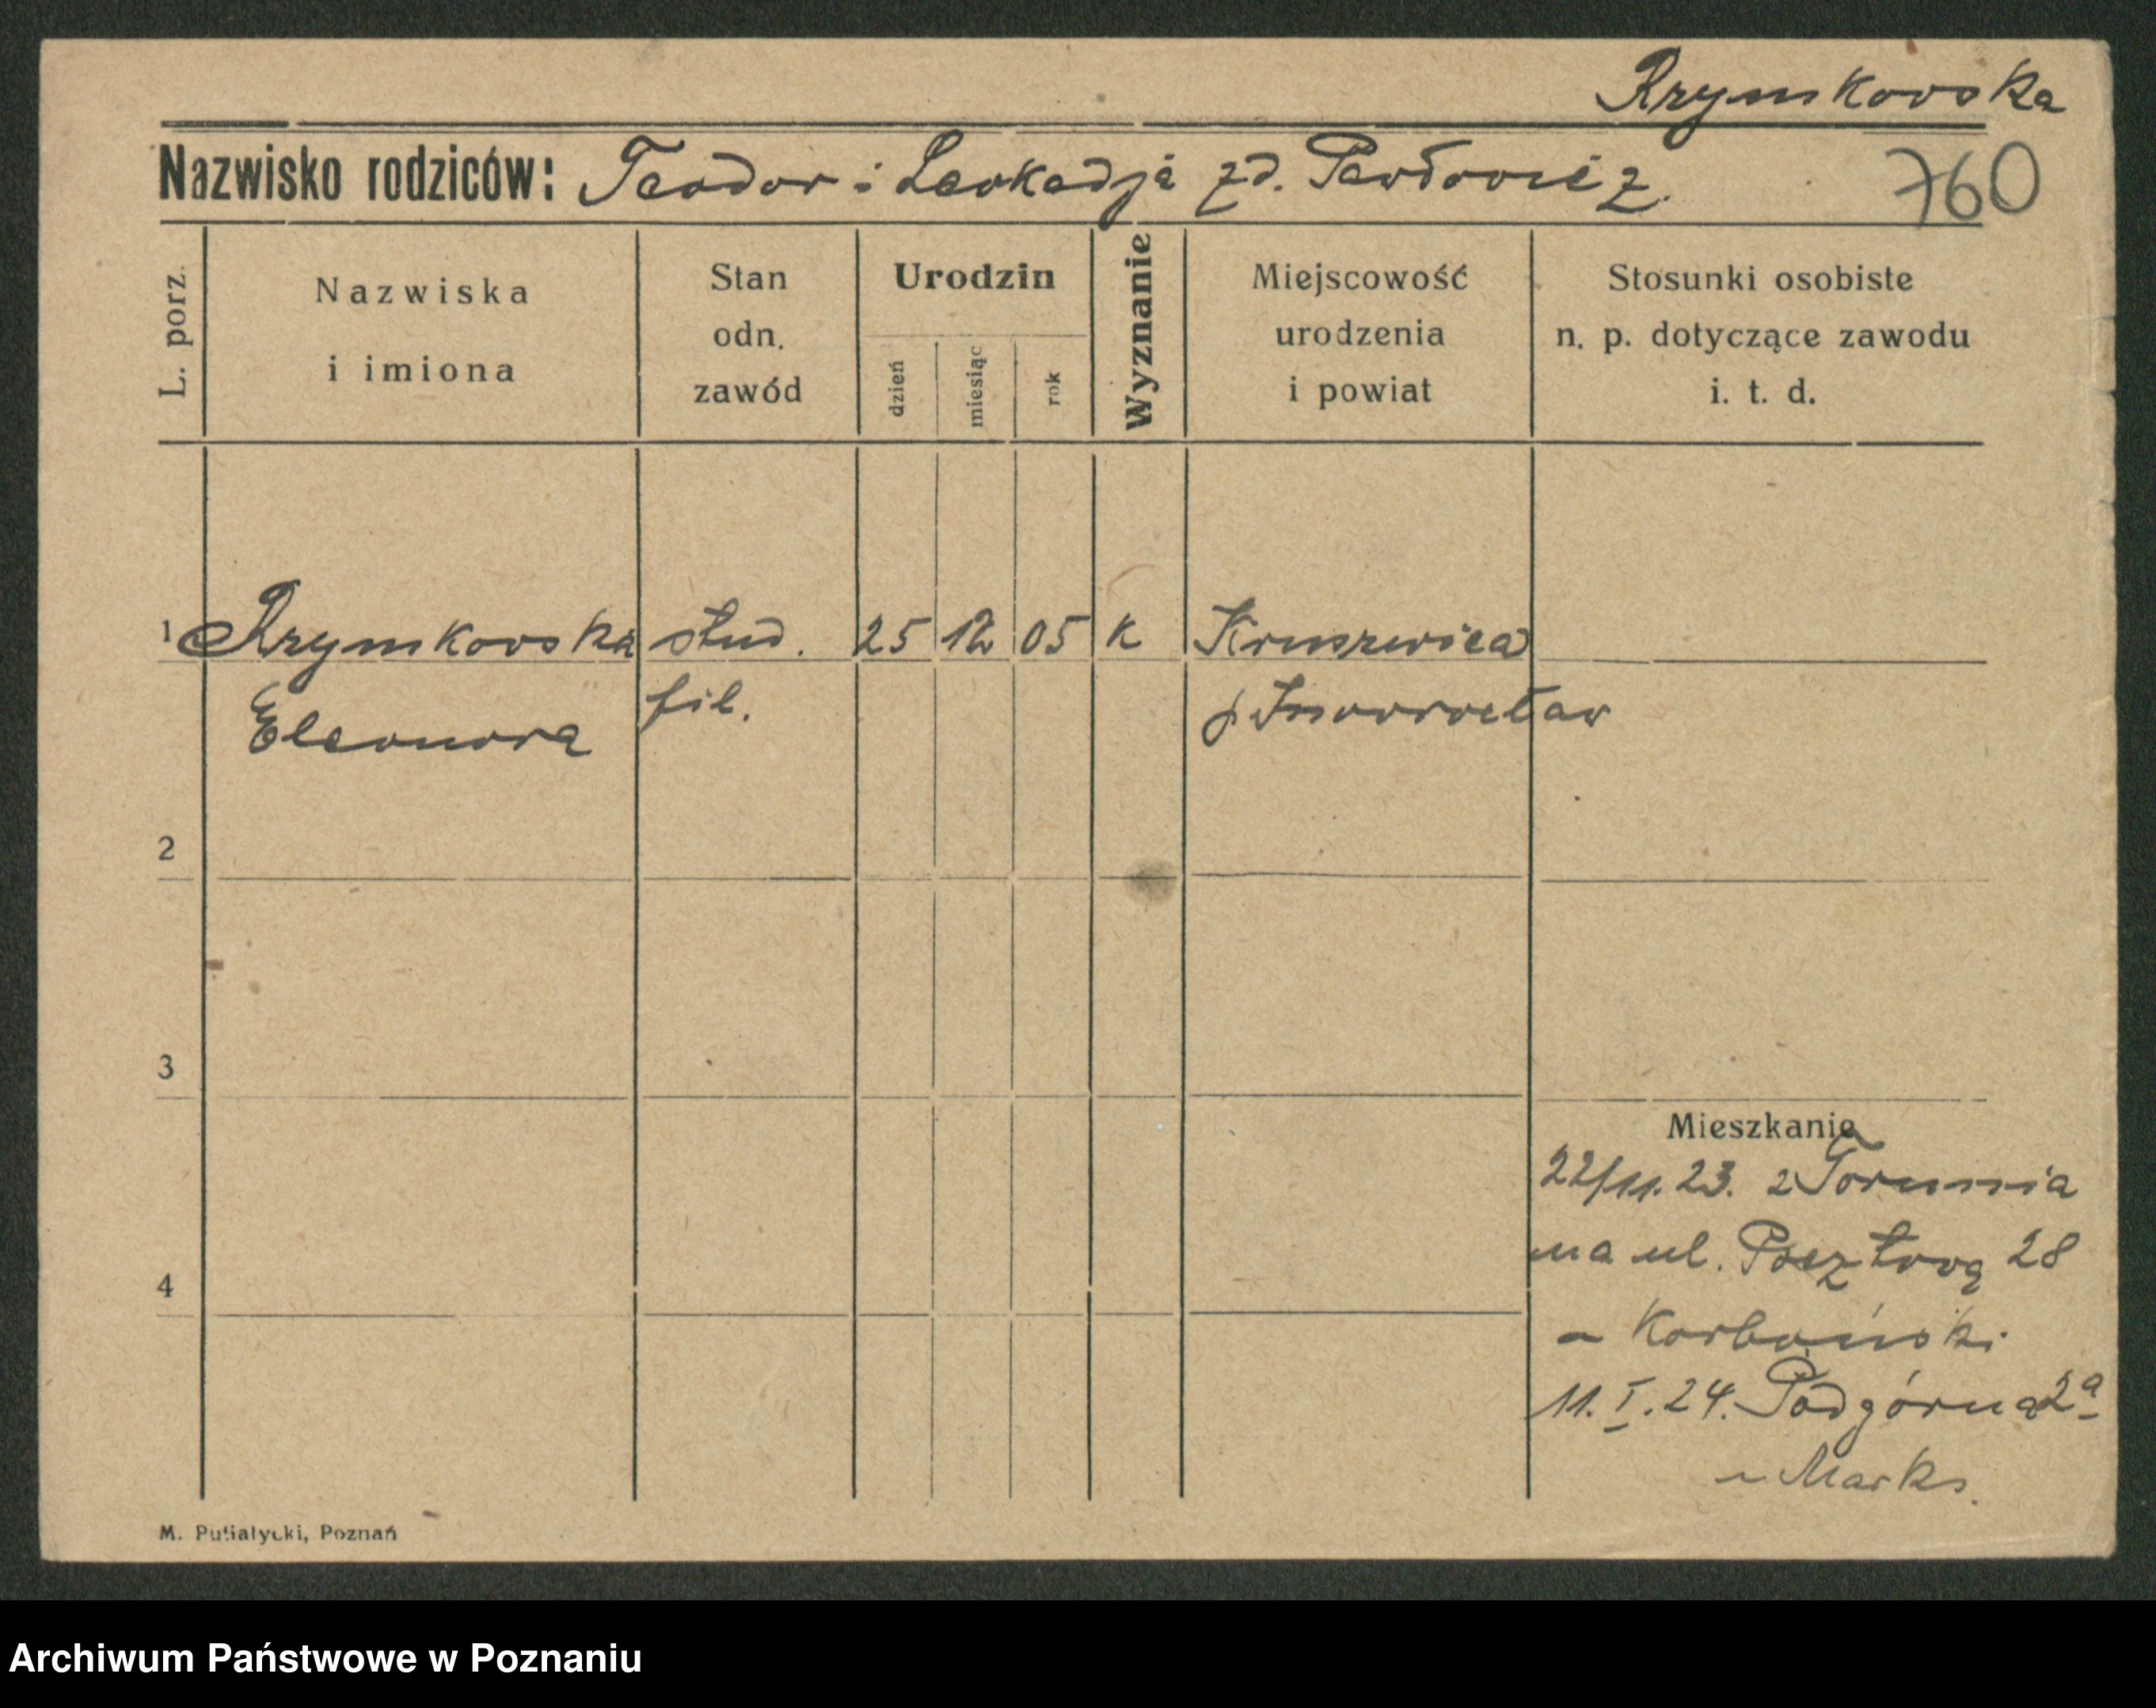 Rzymkowska
Nazwisko rodziców: Teodor i Leokadja zd. Pawłowicz.
760
L. porz.
Nazwiska
i imiona
Stan
odn.
zawód
Urodzin
dzień
miesiąc
rok
Wyznanie
Miejscowość
urodzenia
i powiat
Stosunki osobiste
n. p. dotyczące zawodu
i. t. d.
1 Rzymkowska stud. 25 12 05 K Kruszwica
Eleonora fil. p Inowrocław
2
3
4
Mieszkanie
22/11. 23. z Torunia
na ul. Pocztową 28
Korboński
11. I. 24. Podgórna 2a
Marks.
M. Putiatycki, Poznań
Archiwum Państwowe w Poznaniu